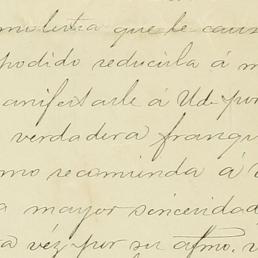 molestia que le caus
podido reducirla á m
anifestarle á Ud. por
verdadera franqu
mo recomienda á
a mayor sinceridad
a véz por su afmo.